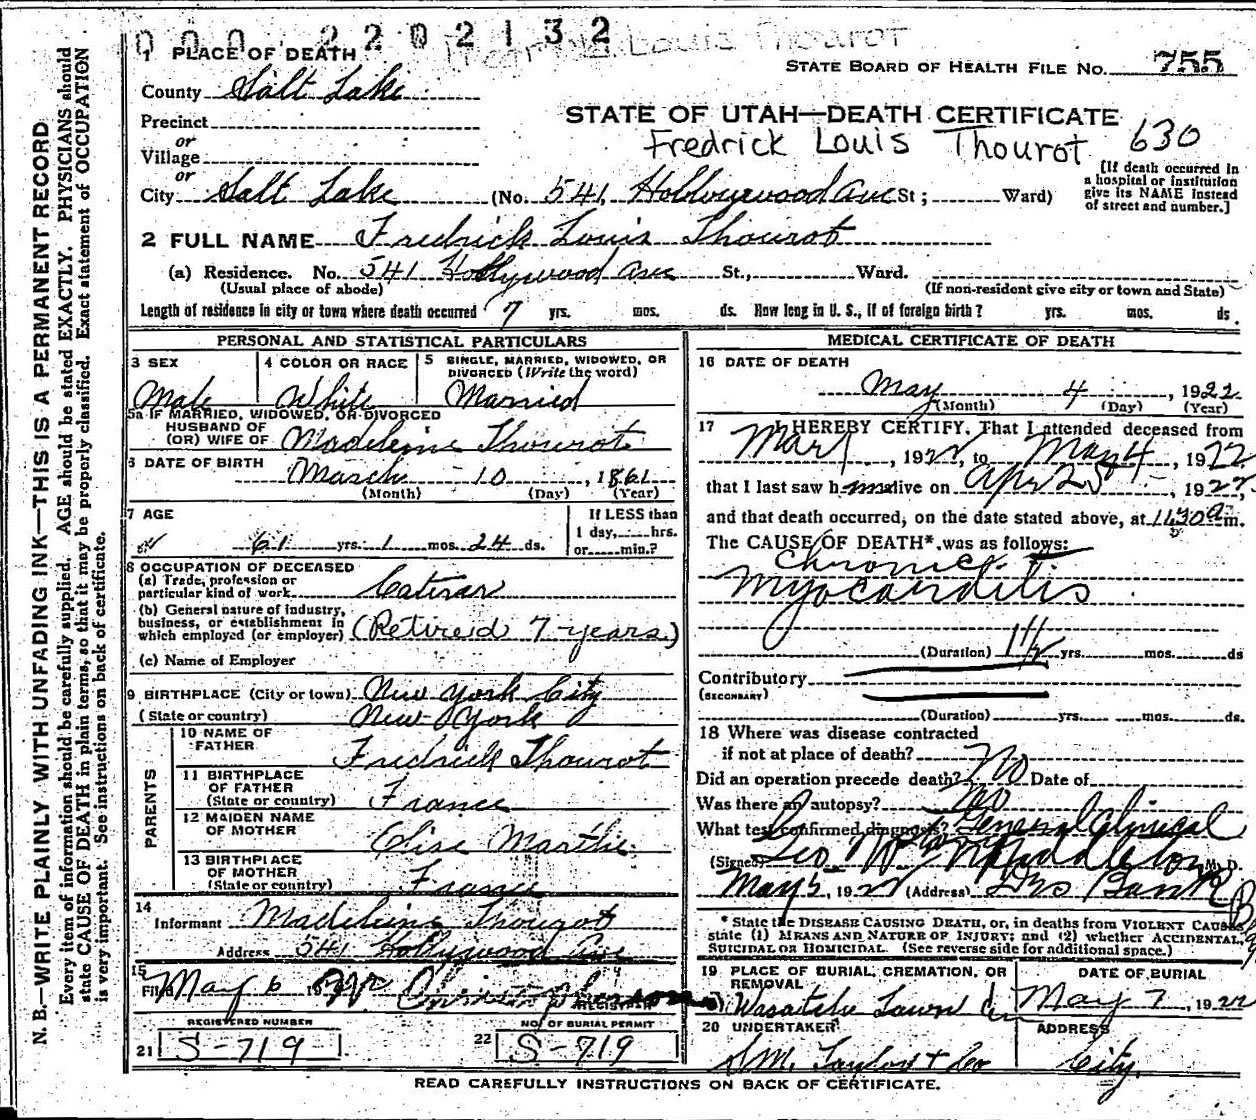 000 2202132
Fredrick Louis Thourot
1 PLACE OF DEATH
STATE BOARD OF HEALTH FILE No. 755
County Salt Lake
STATE OF UTAH—DEATH CERTIFICATE
Precinct
Fredrick Louis Thourot 630
or
Village
or
[If death occurred in a hospital or institution give its NAME instead of street and number.]
City Salt Lake (No. 541 Hollywood Ave St; Ward)
2 FULL NAME Fredrick Louis Thourot
(a) Residence. No. 541 Hollywood Ave St., Ward.
(Usual place of abode) (If non-resident give city or town and State)
Length of residence in city or town where death occurred 7 yrs. mos. ds. How long in U. S., if of foreign birth? yrs. mos. ds.
PERSONAL AND STATISTICAL PARTICULARS
3 SEX Male
4 COLOR OR RACE White
5 SINGLE, MARRIED, WIDOWED, OR DIVORCED (Write the word) Married
5a IF MARRIED, WIDOWED, OR DIVORCED
HUSBAND OF
(OR) WIFE OF Madeleine Thourot
6 DATE OF BIRTH
March 10, 1861
(Month) (Day) (Year)
7 AGE
61 yrs. 1 mos. 24 ds.
If LESS than 1 day, hrs. or min.?
8 OCCUPATION OF DECEASED
(a) Trade, profession or particular kind of work
(b) General nature of industry, business, or establishment in which employed (or employer) (Retired 7 years.)
(c) Name of Employer
9 BIRTHPLACE (City or town) New York City
(State or country) New York
PARENTS
10 NAME OF FATHER Fredrick Thourot
11 BIRTHPLACE OF FATHER (State or country) France
12 MAIDEN NAME OF MOTHER Elise Marthe
13 BIRTHPLACE OF MOTHER (State or country) France
14
Informant Madeleine Thourot
Address 541 Hollywood Ave
15
Filed May 6 19
REGISTRAR
REGISTERED NUMBER
21 S-719
NO. OF BURIAL PERMIT
22 S-719
MEDICAL CERTIFICATE OF DEATH
16 DATE OF DEATH
May 4, 1922
(Month) (Day) (Year)
17 I HEREBY CERTIFY, That I attended deceased from
Mar 1, 1922, to May 4, 1922
that I last saw him alive on Apr 25, 1922,
and that death occurred, on the date stated above, at 11:30 a m.
The CAUSE OF DEATH* was as follows:
Chronic
Myocarditis
(Duration) 1 1/2 yrs. mos. ds
Contributory
(SECONDARY)
(Duration) yrs. mos. ds.
18 Where was disease contracted
if not at place of death?
Did an operation precede death? No Date of
Was there an autopsy? No
What test confirmed diagnosis? General Clinical
(Signed) Geo W Middleton M. D.
May 5, 1922 (Address) Drs Bank
* State the DISEASE CAUSING DEATH, or, in deaths from VIOLENT CAUSES
state (1) MEANS AND NATURE OF INJURY; and (2) whether ACCIDENTAL,
SUICIDAL OR HOMICIDAL. (See reverse side for additional space.)
19 PLACE OF BURIAL, CREMATION, OR REMOVAL
Wasatch Lawn
DATE OF BURIAL
May 7, 1922
20 UNDERTAKER
S.M. Taylor + Co
ADDRESS
City.
READ CAREFULLY INSTRUCTIONS ON BACK OF CERTIFICATE.
N. B.—WRITE PLAINLY WITH UNFADING INK—THIS IS A PERMANENT RECORD
Every item of information should be carefully supplied. AGE should be stated EXACTLY. PHYSICIANS should
state CAUSE OF DEATH in plain terms, so that it may be properly classified. Exact statement of OCCUPATION
is very important. See instructions on back of certificate.